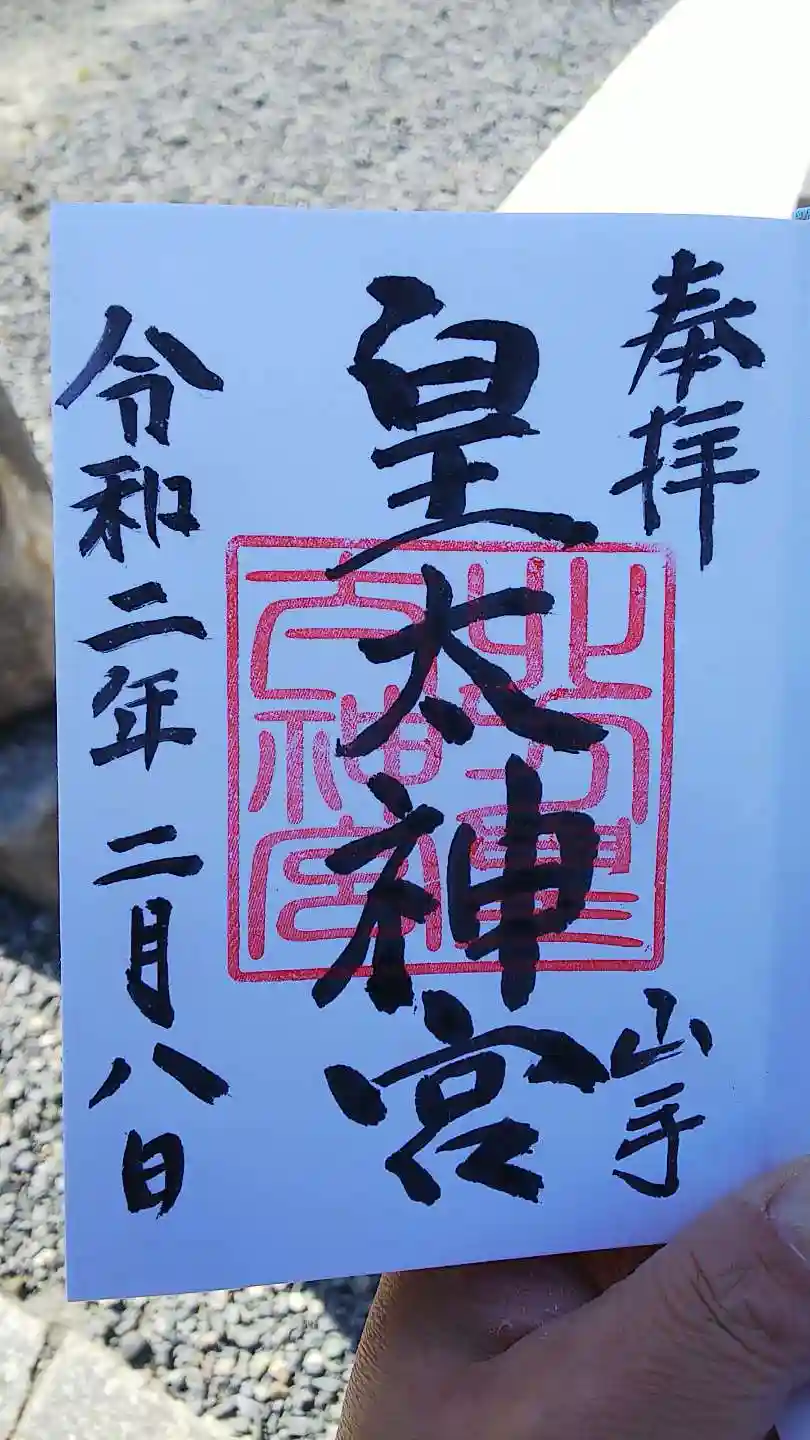 奉拝
山手
皇太神宮
北方皇
大神宮
令和二年二月八日